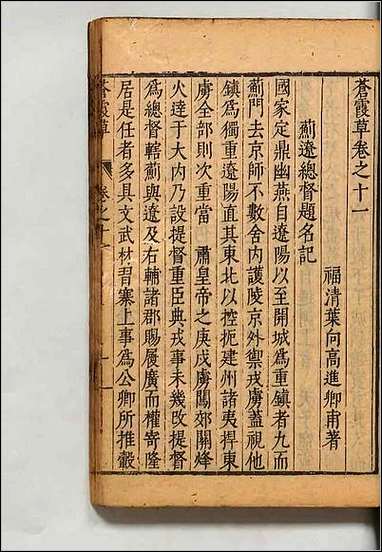 蒼霞草卷之十一
福清葉向高進卿甫著
薊遼總督題名記
國家定鼎幽燕自遼陽以至開城為重鎮者九而
薊門去京師不數舍內護陵京外禦戎虜蓋視他
鎮為獨重遼陽直其東北以控扼建州諸夷捍東
虜全部則次重當 肅皇帝之庚戌虜闌郊關烽
火達于大內乃設提督重臣典戎事未幾改提督
為總督轄薊與遼及右輔諸郡賜履廣而權寄隆
居是任者多具文武材習寨上事為公卿所推轂
蒼霞草
卷之十一
一